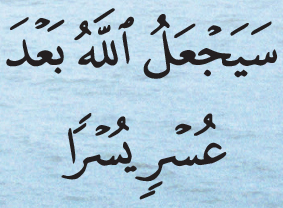 سَيَجْعَلُ ٱللَّهُ بَعْدَ
عُسْرٍ يُسْرًا